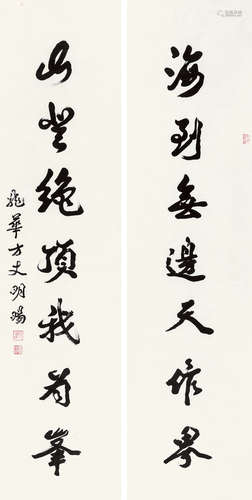 海到無邊天作岸
山登絶頂我為峯
龍華方丈明暘